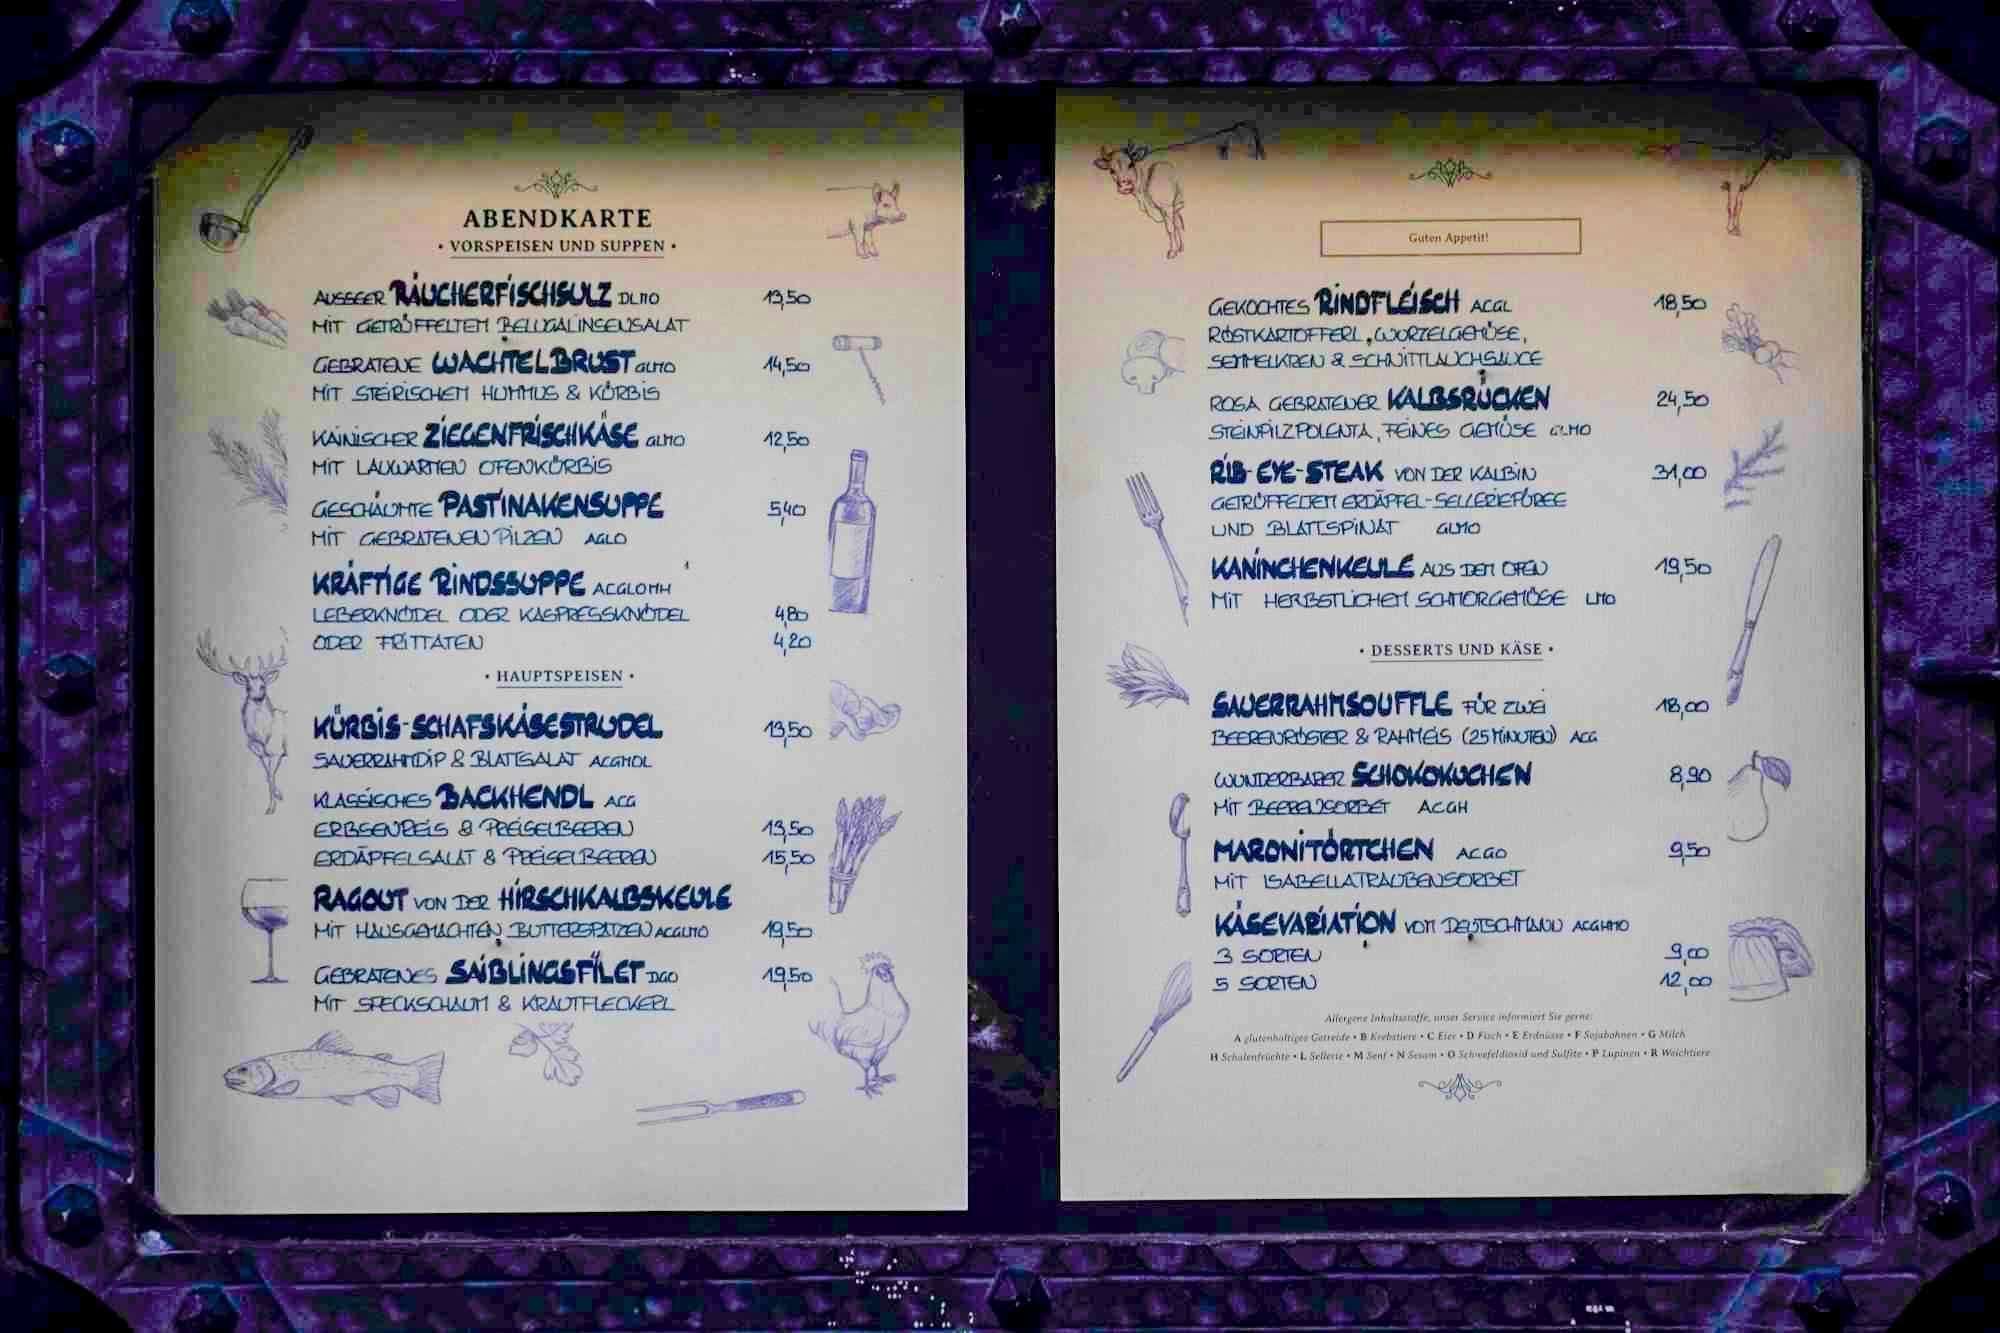 ABENDKARTE
• VORSPEISEN UND SUPPEN •
AUSSEER RÄUCHERFISCHSULZ DLMO 13,50
MIT GETRÜFFELTEM BELUGALINSENSALAT
GEBRATENE WACHTELBRUST GLMO 14,50
MIT STEIRISCHEM HUMMUS & KÜRBIS
KAINISCHER ZIEGENFRISCHKÄSE GLMO 12,50
MIT LAUWARMEN OFENKÜRBIS
GESCHÄUMTE PASTINAKENSUPPE 5,40
MIT GEBRATENEN PILZEN AGLO
KRÄFTIGE RINDSSUPPE ACGLOMH
LEBERKNÖDEL ODER KASPRESSKNÖDEL 4,80
ODER FRITTATEN 4,20
• HAUPTSPEISEN •
KÜRBIS-SCHAFSKÄSESTRUDEL 13,50
SAUERRAHMDIP & BLATTSALAT ACGMOL
KLASSISCHES BACKHENDL ACG
ERBSENREIS & PREISELBEEREN 13,50
ERDÄPFELSALAT & PREISELBEEREN 15,50
RAGOUT VON DER HIRSCHKALBSKEULE
MIT HAUSGEMACHTEN BUTTERSPATZEN ACGLMO 19,50
GEBRATENES SAIBLINGSFILET DGO 19,50
MIT SPECKSCHAUM & KRAUTFLECKERL
Guten Appetit!
GEKOCHTES RINDFLEISCH ACGL 18,50
RÖSTKARTOFFERL, WURZELGEMÜSE,
SEMMELKREN & SCHNITTLAUCHSAUCE
ROSA GEBRATENER KALBSRÜCKEN 24,50
STEINPILZPOLENTA, FEINES GEMÜSE GLMO
RIB-EYE-STEAK VON DER KALBIN 31,00
GETRÜFFELTEM ERDÄPFEL-SELLERIEPÜREE
UND BLATTSPINAT GLMO
KANINCHENKEULE AUS DEM OFEN 19,50
MIT HERBSTLICHEM SCHMORGEMÜSE LMO
• DESSERTS UND KÄSE •
SAUERRAHMSOUFFLE FÜR ZWEI 18,00
BEERENRÖSTER & RAHMEIS (25 MINUTEN) ACG
WUNDERBARER SCHOKOKUCHEN 8,90
MIT BEERENSORBET ACGH
MARONITÖRTCHEN ACGO 9,50
MIT ISABELLATRAUBENSORBET
KÄSEVARIATION VOM DEUTSCHMANN ACGHMO
3 SORTEN 9,00
5 SORTEN 12,00
Allergene Inhaltsstoffe, unser Service informiert Sie gerne:
A glutenhaltiges Getreide • B Krebstiere • C Eier • D Fisch • E Erdnüsse • F Sojabohnen • G Milch
H Schalenfrüchte • L Sellerie • M Senf • N Sesam • O Schwefeldioxid und Sulfite • P Lupinen • R Weichtiere